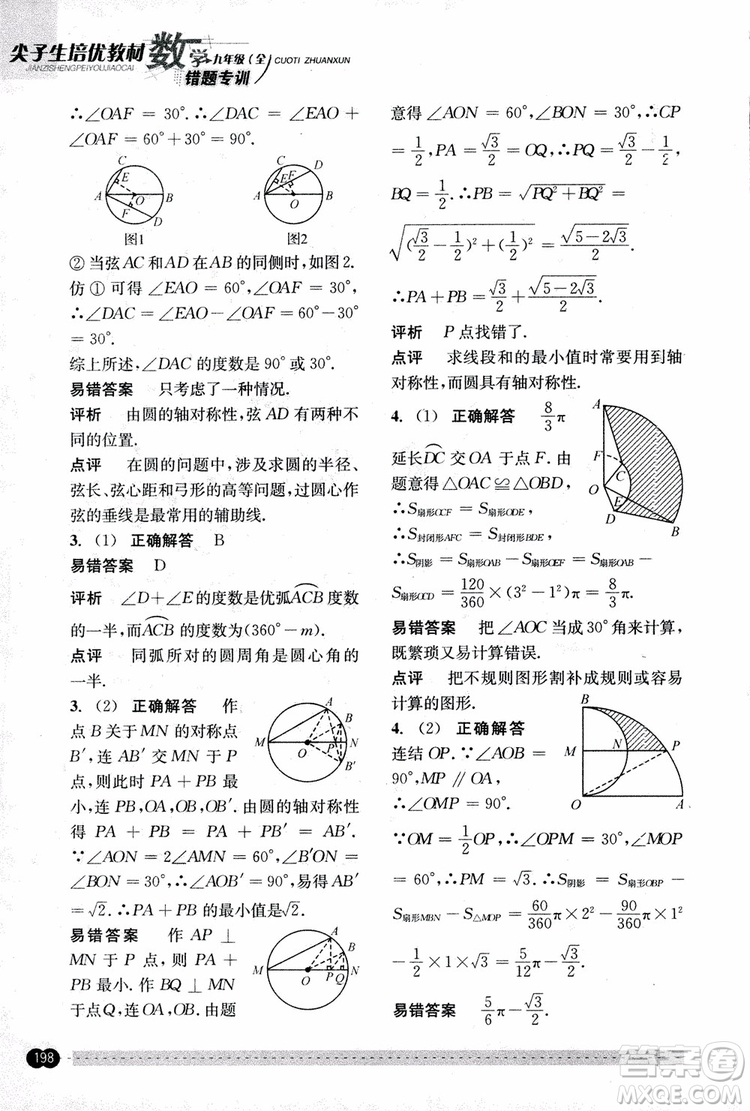 尖子生培优教材 数学 九年级（全） CUOTI ZHUANXUN
JIANZISHENGPEIYOUJIAOCAI 错题专训
∴∠OAF = 30°. ∴∠DAC = ∠EAO +
∠OAF = 60°+30° = 90°.
C E A O B F D
C E F D A O B
图1 图2
② 当弦AC和AD在AB的同侧时,如图2.
仿 ① 可得 ∠EAO = 60°, ∠OAF = 30°.
∴∠DAC = ∠EAO - ∠OAF = 60° - 30°
= 30°.
综上所述,∠DAC的度数是90°或30°.
易错答案 只考虑了一种情况.
评析 由圆的轴对称性,弦AD有两种不
同的位置.
点评 在圆的问题中,涉及求圆的半径、
弦长、弦心距和弓形的高等问题,过圆心作
弦的垂线是最常用的辅助线.
3. (1) 正确解答 B
易错答案 D
评析 ∠D+∠E的度数是优弧ACB度数
的一半,而ACB的度数为(360°-m).
点评 同弧所对的圆周角是圆心角的
一半.
3. (2) 正确解答 作
点B关于MN的对称点
B′,连AB′交MN于P
点,则此时PA+PB最
小,连PB,OA,OB′. 由圆的轴对称性
得 PA + PB = PA + PB′ = AB′.
∵∠AON = 2∠AMN = 60°,∠B′ON =
∠BON = 30°,∴∠AOB′ = 90°,易得AB′
= √2. ∴PA+PB的最小值是√2.
易错答案 作 AP ⊥
MN于P点,则P点为所
求. 作BQ ⊥ MN
于点Q,连OA,OB,由题
A B M O P N B′
A B M O P Q N
意得∠AON = 60°,∠BON = 30°. ∴CP
= 1/2, PA = √3/2 = OQ, ∴PQ = √3/2 - 1/2,
BQ = 1/2. ∴PB = √(PQ²+BQ²) =
√((√3/2 - 1/2)²+(1/2)²) = √(5-2√3)/2.
∴PA+PB = √3/2 + √(5-2√3)/2.
评析 P点找错了.
点评 求线段和的最小值时常要用到轴
对称性,而圆具有轴对称性.
4. (1) 正确解答 8/3π
延长DC交OA于点F. 由
题意得△OAC≌△OBD,
∴S扇形OCF = S扇形ODE,
∴S封闭形AFC = S封闭形BDE,
∴S阴影 = S扇形OAB - S扇形OEF = S扇形OAB -
S扇形OCD = 120/360 × (3²-1²)π = 8/3π.
A F C O D B
易错答案 把∠AOC当成30°角来计算,
既繁琐又易计算错误.
点评 把不规则图形割补成规则或容易
计算的图形.
4. (2) 正确解答
连结OP. ∵∠AOB =
90°,MP // OA.
∴∠OMP = 90°.
B M N P O A
∵OM = 1/2OP, ∴∠OPM = 30°, ∠POM
= 60°, ∴PM = √3. ∴S阴影 = S扇形OBP -
S扇形MBN - S△MOP = 60/360π×2² - 90/360π×1²
- 1/2×1×√3 = 5/12π - √3/2.
易错答案 5/6π - √3/2
198
答案圈
MXQE.COM